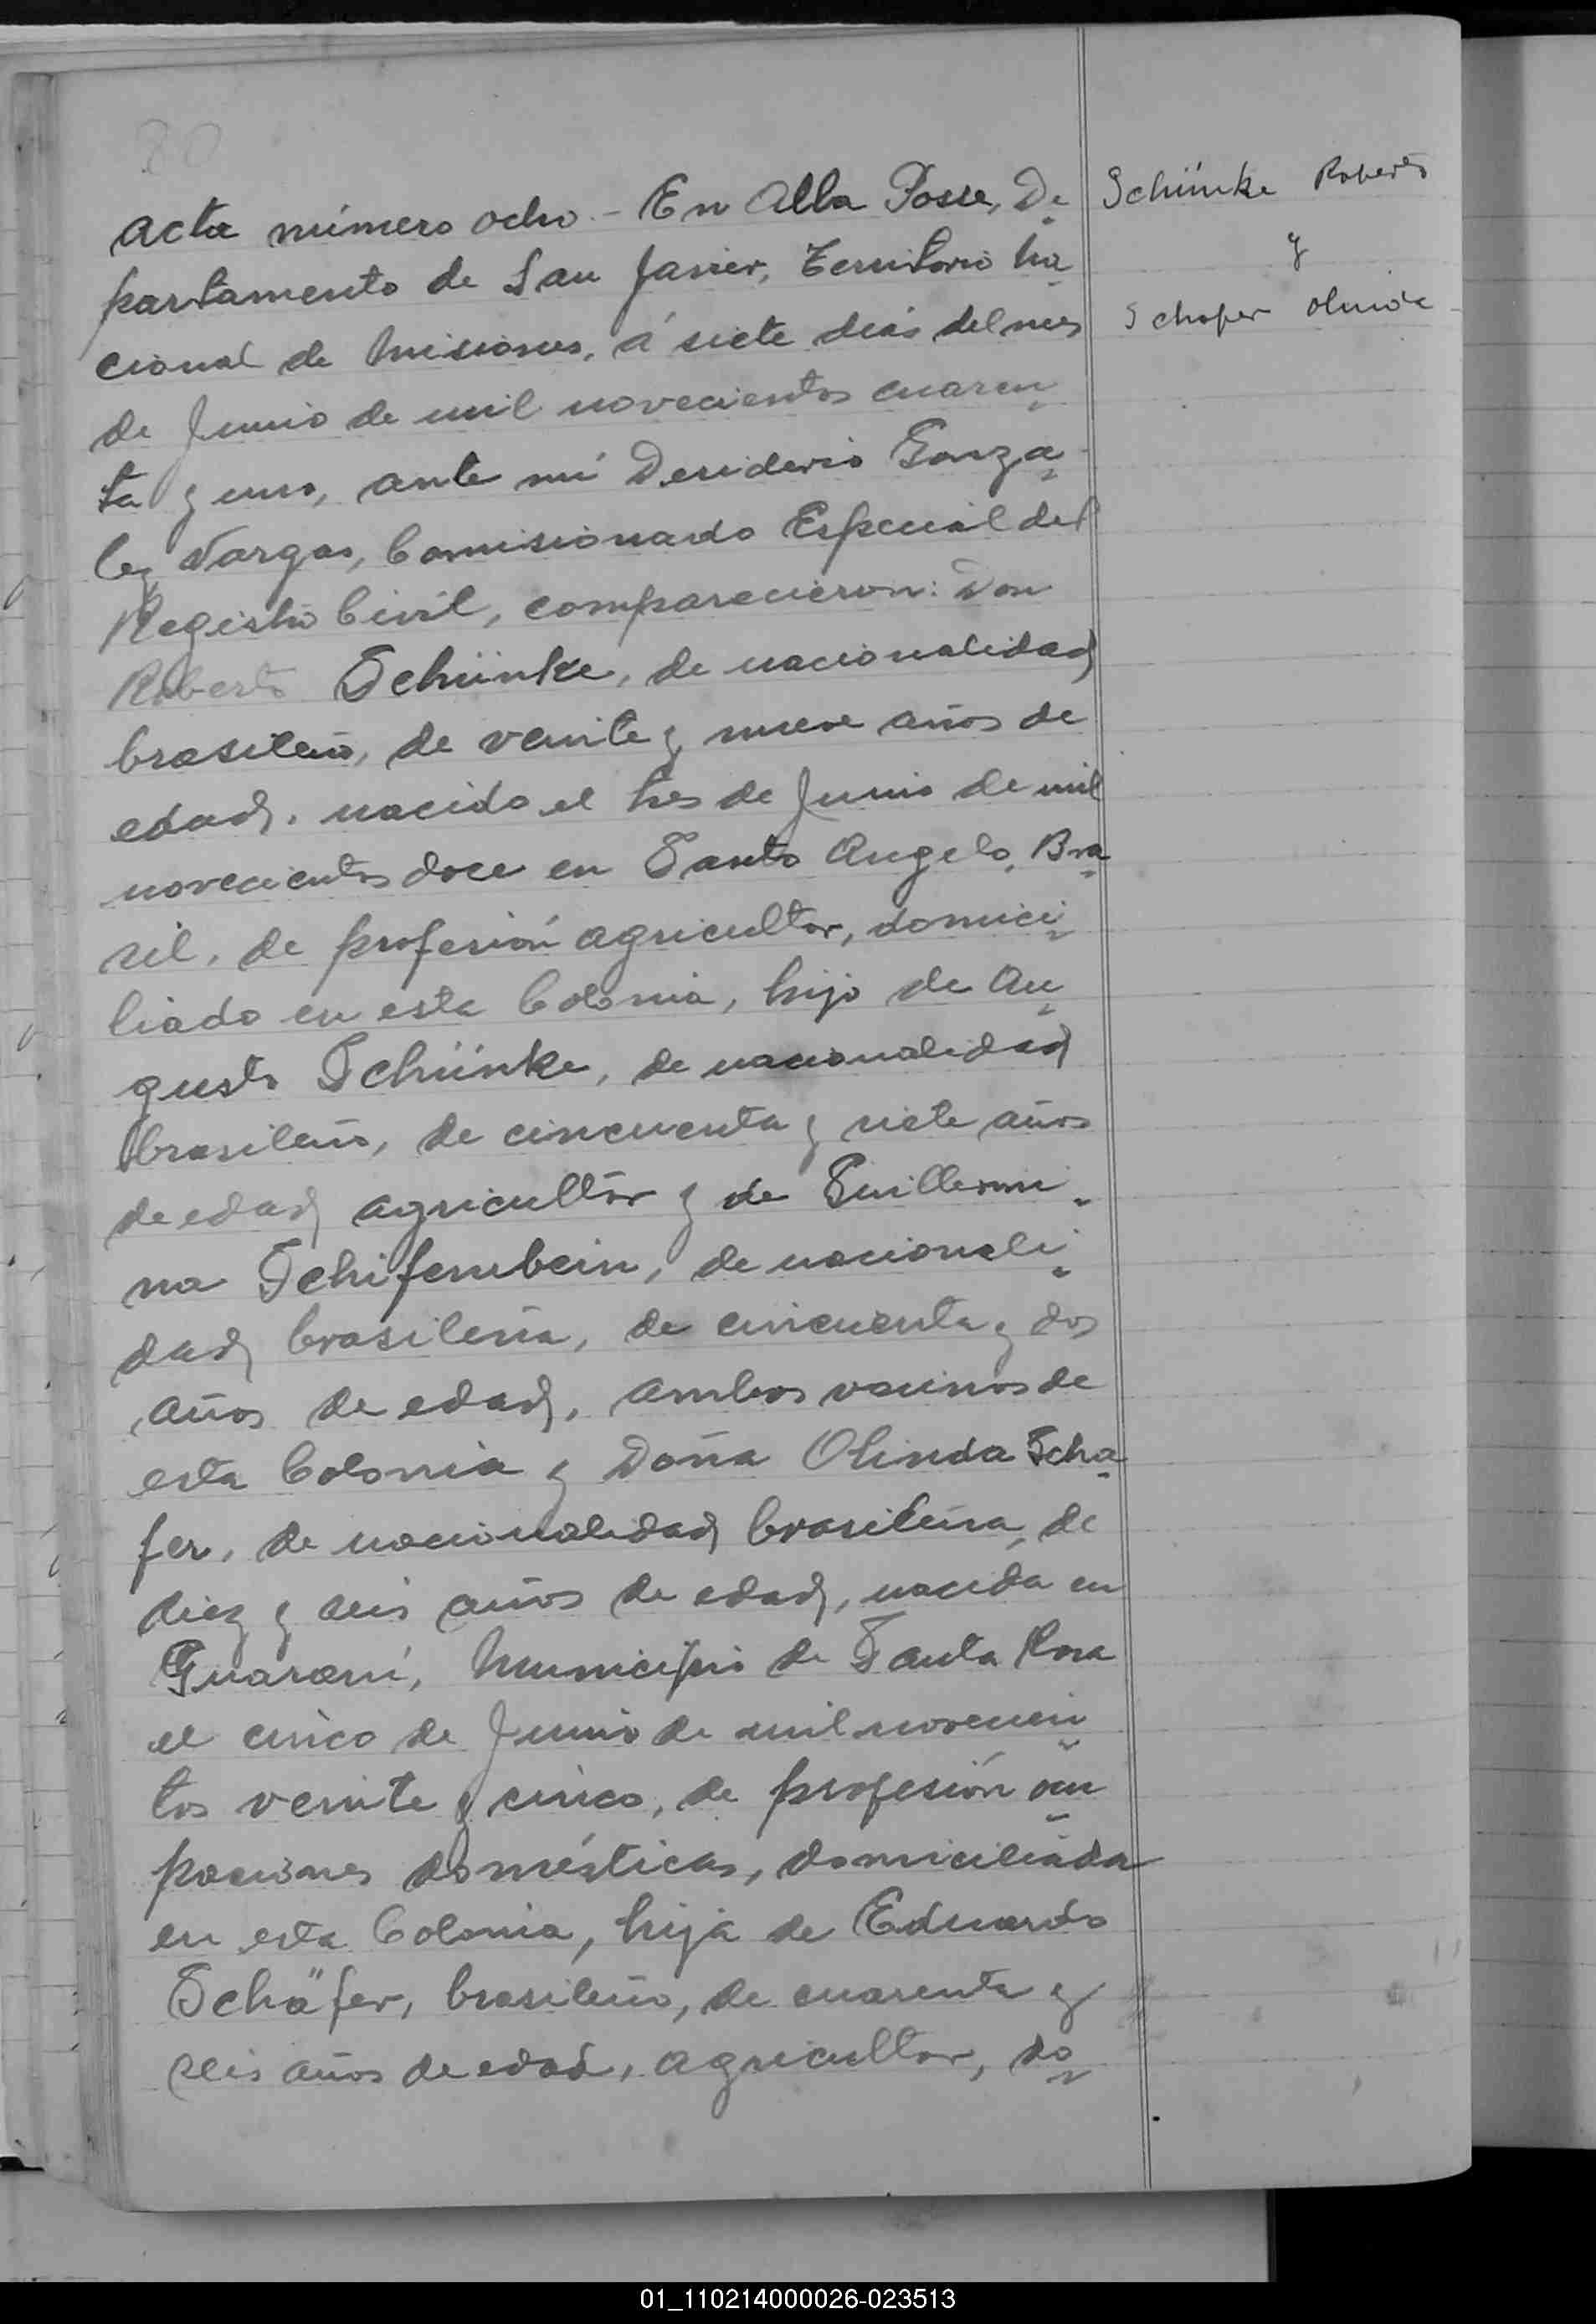 80
Acta número ocho.- En Alba Posse, De
partamento de San Javier, Territorio Na
cional de Misiones, á siete días del mes
de Junio de mil novecientos cuaren
ta y uno, ante mí Desiderio Gonza
lez Vargas, Comisionado Especial del
Registro Civil, comparecieron: Don
Roberto Schünke, de nacionalidad
brasileño, de veinte y nueve años de
edad, nacido el tres de Junio de mil
novecientos doce en Santo Angelo, Bra
sil, de profesión agricultor, domici
liado en esta Colonia, hijo de Au
gusto Schünke, de nacionalidad
brasileño, de cincuenta y siete años
de edad, agricultor y de Guillermi
na Schifenbein, de nacionali
dad brasileña, de cincuenta y dos
años de edad, ambos vecinos de
esta Colonia y Doña Olinda Scha
fer, de nacionalidad brasileña, de
diez y seis años de edad, nacida en
Guaraní, Municipio de Santa Rosa
el cinco de Junio de mil novecien
tos veinte y cinco, de profesión ocu
paciones domésticas, domiciliada
en esta Colonia, hija de Eduardo
Schäfer, brasileño, de cuarenta y
seis años de edad, agricultor, do
Schünke Roberto
y
Schafer Olinda
01_110214000026-023513